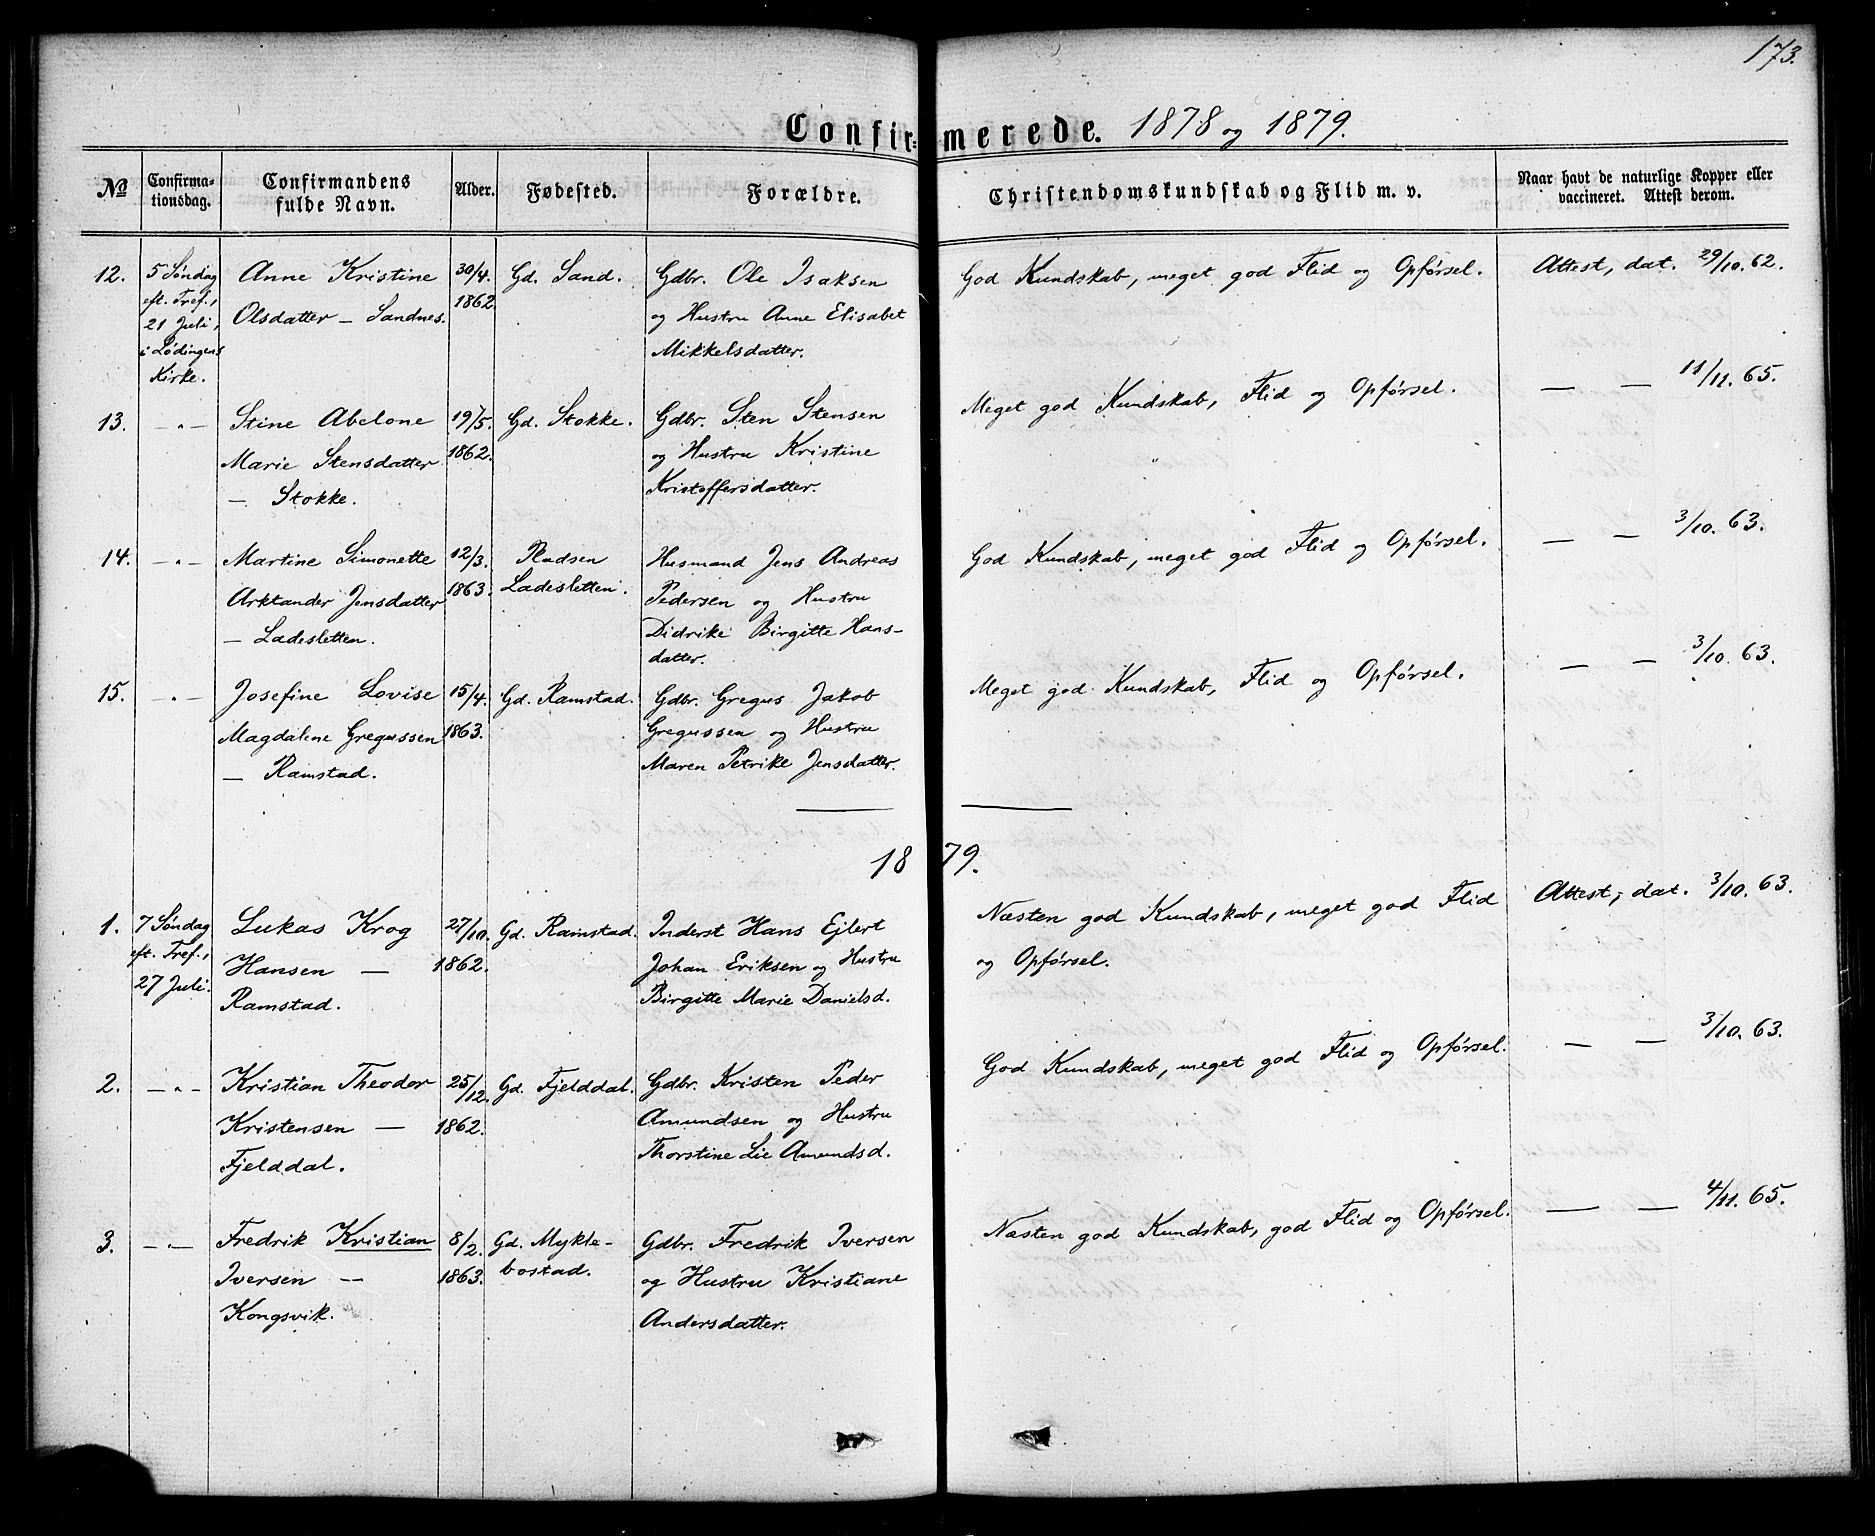 173.
Confir=merede. 1878 og 1879.
No
Confirma-
tionsdag.
Confirmandens
fulde Navn.
Alder.
Fødested.
Forældre.
Christendomskundskab og Flid m. v.
Naar havt de naturlige Kopper eller
vaccineret. Attest derom.
12.
5 Søndag
eft. Tref.,
21 Juli,
i Lødingens
Kirke.
Anne Kristine
Olsdatter – Sandnes.
30/4.
1862.
Gd. Sand.
Gdbr. Ole Isaksen
og Hustru Anne Elisabet
Mikkelsdatter.
God Kundskab, meget god Flid og Opførsel.
Attest, dat. 29/10. 62.
13.
— " —
Stine Abelone
Marie Stensdatter
— Stokke.
19/5.
1862.
Gd. Stokke.
Gdbr. Sten Stensen
og Hustru Kristine
Kristoffersdatter.
Meget god Kundskab, Flid og Opførsel.
— — 11/11. 65.
14.
— " —
Martine Simonette
Arktander Jensdatter
— Ladesletten.
12/3.
1863.
Pladsen
Ladesletten.
Husmand Jens Andreas
Pedersen og Hustru
Didrike Birgitte Hans-
datter.
God Kundskab, meget god Flid og Opførsel.
— — 3/10. 63.
15.
— " —
Josefine Lovise
Magdalene Gregussen
— Ramstad.
15/4.
1863.
Gd. Ramstad.
Gdbr. Gregus Jakob
Gregussen og Hustru
Maren Petrike Jensdatter.
Meget god Kundskab, Flid og Opførsel.
— — 3/10. 63.
1879.
1.
7 Søndag
eft. Tref.,
27 Juli.
Lukas Krog
Hansen —
Ramstad.
27/10.
1862.
Gd. Ramstad.
Inderst Hans Ejlert
Johan Eriksen og Hustru
Birgitte Marie Danielsd.
Næsten god Kundskab, meget god Flid
og Opførsel.
Attest, dat. 3/10. 63.
2.
— " —
Kristian Theodor
Kristensen —
Fjelddal.
25/12.
1862.
Gd. Fjelddal.
Gdbr. Kristen Peder
Amundsen og Hustru
Thorstine Lie Amundsd.
God Kundskab, meget god Flid og Opførsel.
— — 3/10. 63.
3.
— " —
Fredrik Kristian
Iversen —
Kongsvik.
8/2.
1863.
Gd. Mykle-
bostad.
Gdbr. Fredrik Iversen
og Hustru Kristiane
Andersdatter.
Næsten god Kundskab, god Flid og Opførsel.
— — 4/11. 65.